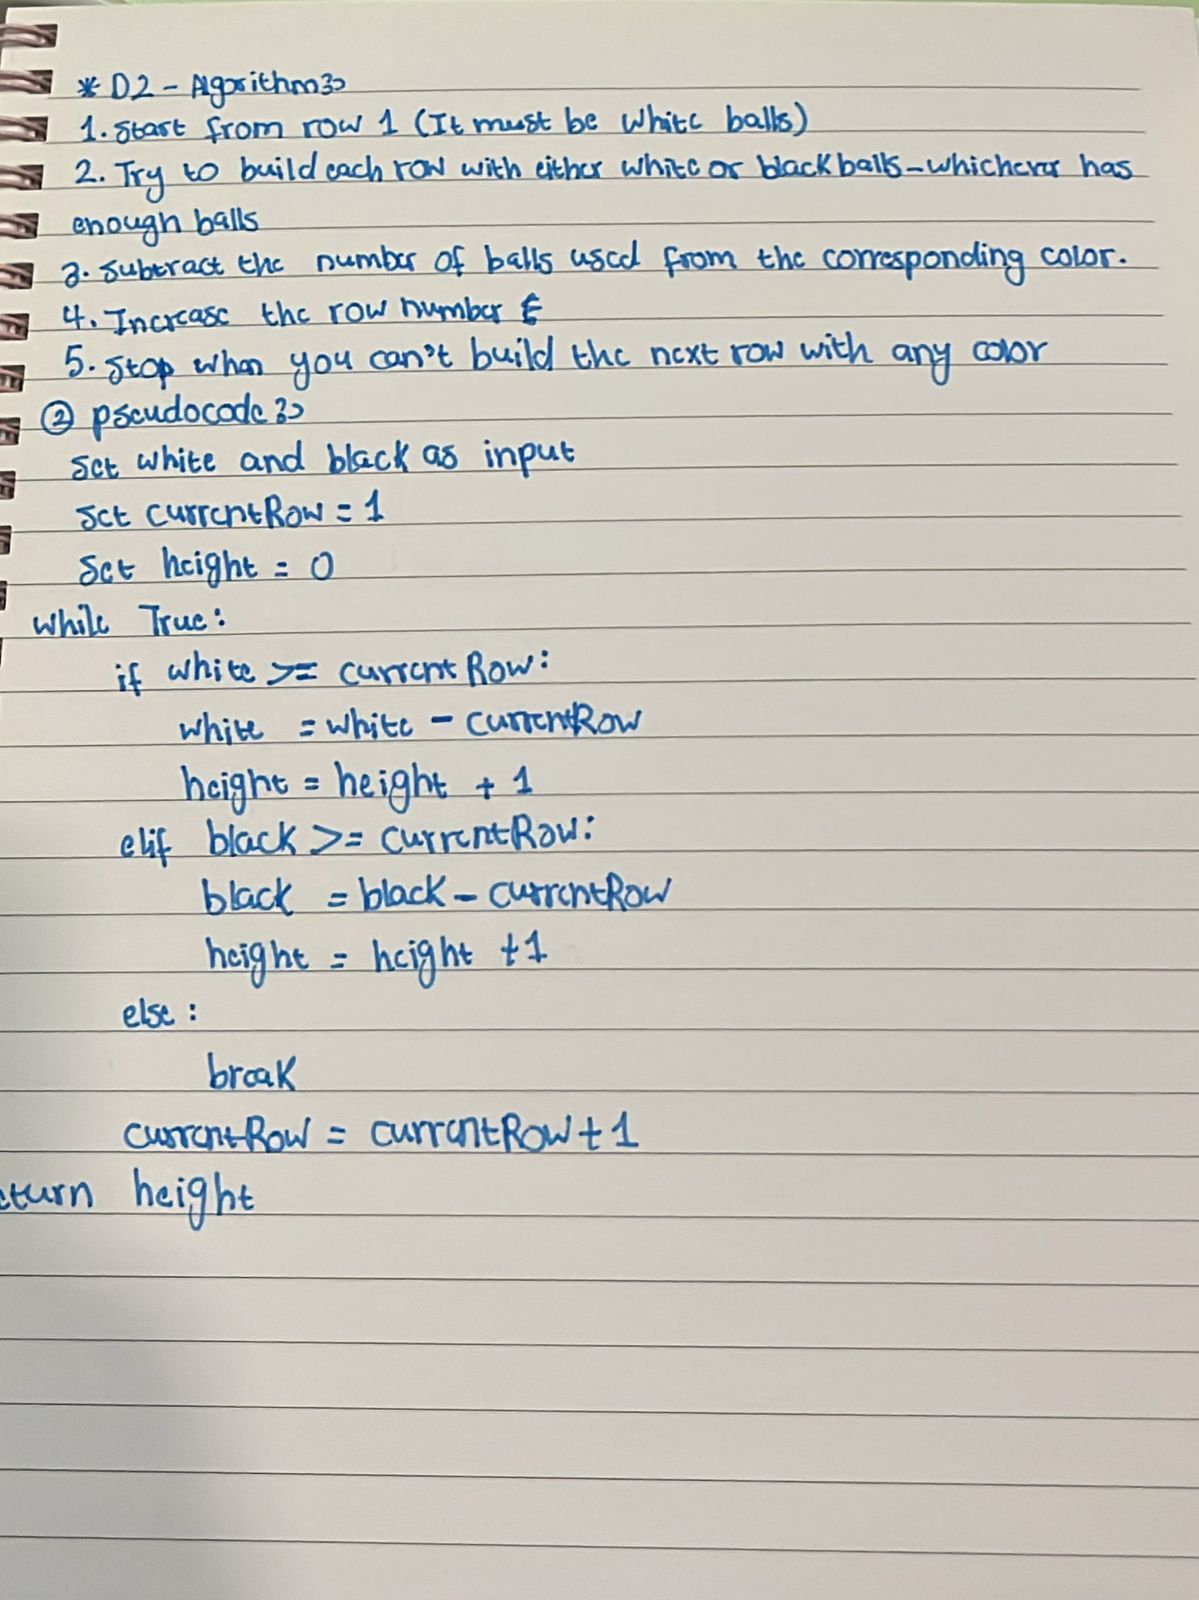 * D2 - Algorithm:
1. Start from row 1 (It must be white balls)
2. Try to build each row with either white or black balls - whichever has
enough balls
3. Subtract the number of balls used from the corresponding color.
4. Increase the row number
5. Stop when you can't build the next row with any color
② pseudocode:
Set white and black as input
Set currentRow = 1
Set height = 0
while True:
if white >= currentRow:
white = white - currentRow
height = height + 1
elif black >= currentRow:
black = black - currentRow
height = height + 1
else:
break
currentRow = currentRow + 1
eturn height